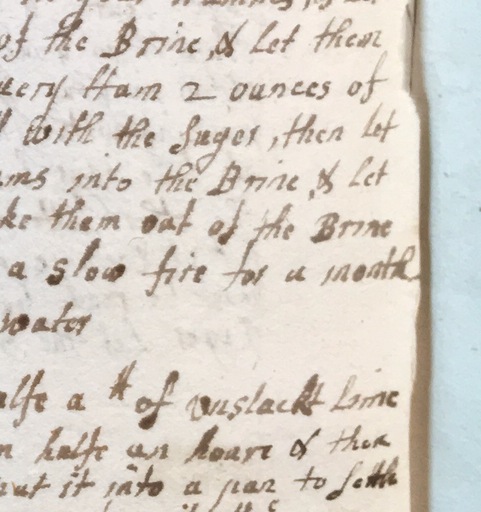 of the Brine, & let them
every Ham 2 ounces of
with the Suger, then let
ms into the Brine, & let
ke them out of the Brine
a slow fire for a month
water
alfe a tt of unslackt Lime
n halfe an houre & then
put it into a pan to settle